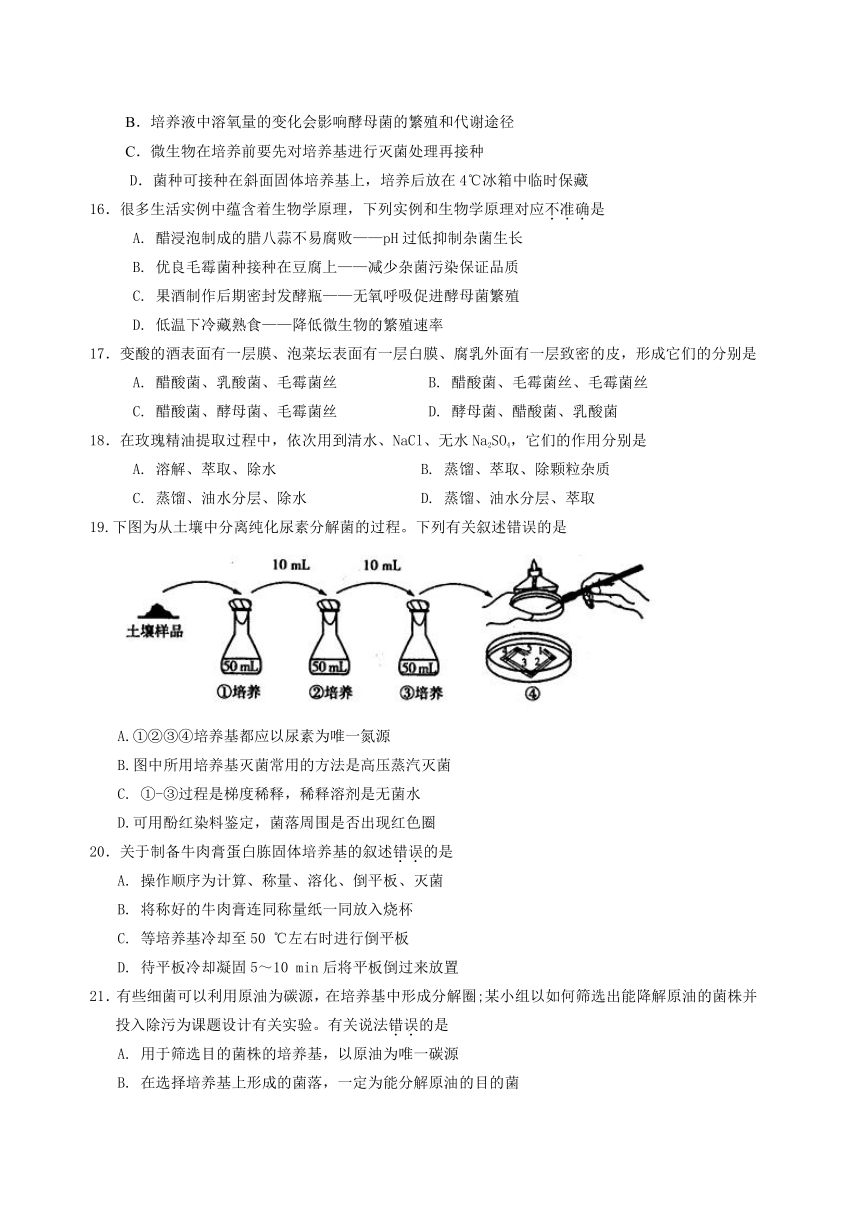 B．培养液中溶氧量的变化会影响酵母菌的繁殖和代谢途径
C．微生物在培养前要先对培养基进行灭菌处理再接种
D．菌种可接种在斜面固体培养基上，培养后放在4℃冰箱中临时保藏
16．很多生活实例中蕴含着生物学原理，下列实例和生物学原理对应不准确是
A. 醋浸泡制成的腊八蒜不易腐败——pH过低抑制杂菌生长
B. 优良毛霉菌种接种在豆腐上——减少杂菌污染保证品质
C. 果酒制作后期密封发酵瓶——无氧呼吸促进酵母菌繁殖
D. 低温下冷藏熟食——降低微生物的繁殖速率
17．变酸的酒表面有一层膜、泡菜坛表面有一层白膜、腐乳外面有一层致密的皮，形成它们的分别是
A. 醋酸菌、乳酸菌、毛霉菌丝 B. 醋酸菌、毛霉菌丝、毛霉菌丝
C. 醋酸菌、酵母菌、毛霉菌丝 D. 酵母菌、醋酸菌、乳酸菌
18．在玫瑰精油提取过程中，依次用到清水、NaCl、无水Na₂SO₄，它们的作用分别是
A. 溶解、萃取、除水 B. 蒸馏、萃取、除颗粒杂质
C. 蒸馏、油水分层、除水 D. 蒸馏、油水分层、萃取
19.下图为从土壤中分离纯化尿素分解菌的过程。下列有关叙述错误的是
10 mL 10 mL
土壤样品
50 mL 50 mL 50 mL
①培养 ②培养 ③培养 ④
A.①②③④培养基都应以尿素为唯一氮源
B.图中所用培养基灭菌常用的方法是高压蒸汽灭菌
C. ①-③过程是梯度稀释，稀释溶剂是无菌水
D.可用酚红染料鉴定，菌落周围是否出现红色圈
20．关于制备牛肉膏蛋白胨固体培养基的叙述错误的是
A. 操作顺序为计算、称量、溶化、倒平板、灭菌
B. 将称好的牛肉膏连同称量纸一同放入烧杯
C. 等培养基冷却至50 ℃左右时进行倒平板
D. 待平板冷却凝固5～10 min后将平板倒过来放置
21．有些细菌可以利用原油为碳源，在培养基中形成分解圈;某小组以如何筛选出能降解原油的菌株并
投入除污为课题设计有关实验。有关说法错误的是
A. 用于筛选目的菌株的培养基，以原油为唯一碳源
B. 在选择培养基上形成的菌落，一定为能分解原油的目的菌